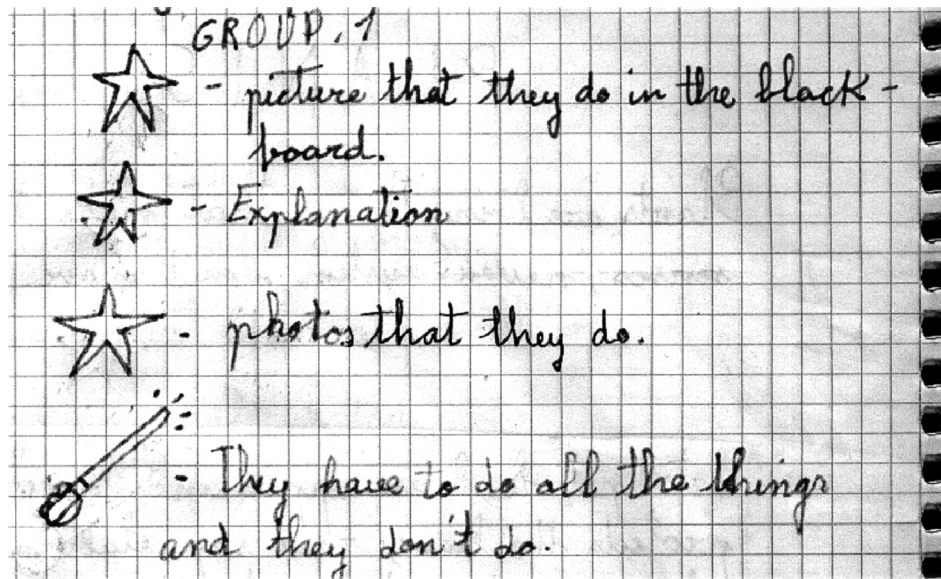 GROUP. 1
- picture that they do in the black-
board.
- Explanation
- photos that they do.
- They have to do all the things
and they don't do.